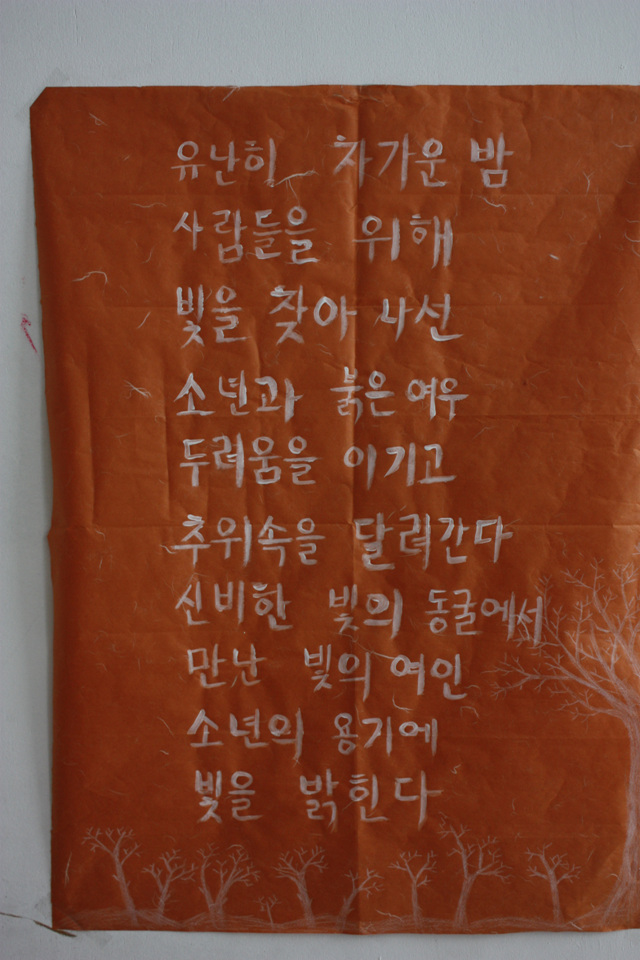 유난히 차가운 밤
사람들을 위해
빛을 찾아 나선
소년과 붉은 여우
두려움을 이기고
추위속을 달려간다
신비한 빛의 동굴에서
만난 빛의 여인
소년의 용기에
빛을 밝힌다